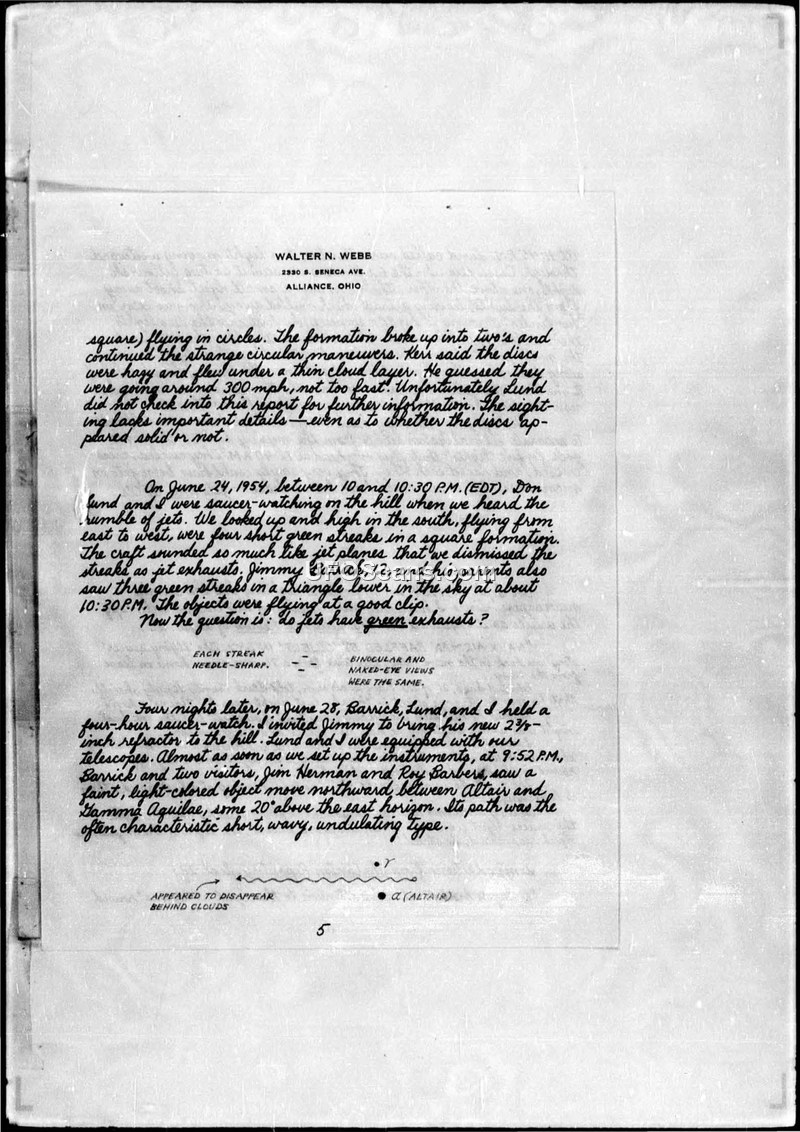 WALTER N. WEBB
2330 S. SENECA AVE.
ALLIANCE, OHIO
square) flying in circles. The formation broke up into two's and
continued the strange circular maneuvers. Kerr said the discs
were hazy and flew under a thin cloud layer. He guessed they
were going around 300 mph, "not too fast." Unfortunately Lund
did not check into this report for further information. The sight-
ing lacks important details—even as to whether the discs ap-
peared solid or not.
On June 24, 1954, between 10 and 10:30 P.M. (EDT), Don
Lund and I were saucer-watching on the hill when we heard the
rumble of jets. We looked up and high in the south, flying from
east to west, were four short green streaks in a square formation.
The craft sounded so much like jet planes that we dismissed the
streaks as jet exhausts. Jimmy Barrick, 12, and his parents also
saw three green streaks in a triangle lower in the sky at about
10:30 P.M. The objects were flying at a good clip.
Now the question is: do jets have green exhausts?
EACH STREAK
NEEDLE-SHARP.
BINOCULAR AND
NAKED-EYE VIEWS
WERE THE SAME.
Four nights later, on June 28, Barrick, Lund, and I held a
four-hour saucer-watch. I invited Jimmy to bring his new 2 3/8-
inch refractor to the hill. Lund and I were equipped with our
telescopes. Almost as soon as we set up the instruments, at 9:52 P.M.,
Barrick and two visitors, Jim Herman and Roy Barbera, saw a
faint, light-colored object move northward between Altair and
Gamma Aquilae, some 20° above the east horizon. Its path was the
often characteristic short, wavy, undulating type.
γ
APPEARED TO DISAPPEAR
BEHIND CLOUDS
α (ALTAIR)
5
UFOScans.com